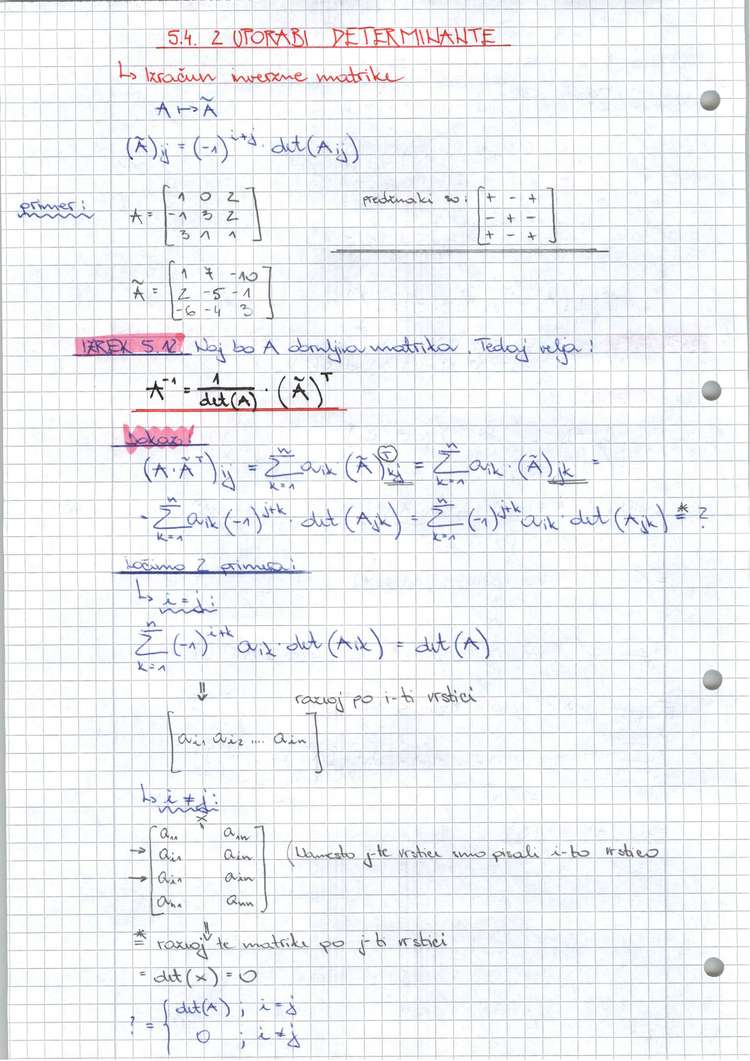 5.4. 2 UPORABI DETERMINANTE
↳ Izračun inverzne matrike
A ↦ Ã
(Ã)ij = (-1)^{i+j} · det(Aij)
primer: A = [1 0 2; -1 3 2; 3 1 1] predznaki so: [+ - +; - + -; + - +]
Ã = [1 7 -10; 2 -5 -1; -6 -4 3]
IZREK 5.12. Naj bo A obrnljiva matrika. Tedaj velja:
A^{-1} = 1/det(A) · (Ã)^T
Dokaz:
(A·Ã^T)ij = Σ_{k=1}^{n} aik (Ã)^{T}_{kj} = Σ_{k=1}^{n} aik · (Ã)jk =
= Σ_{k=1}^{n} aik (-1)^{j+k} · det(Ajk) = Σ_{k=1}^{n} (-1)^{j+k} aik · det(Ajk) =* ?
Ločimo 2 primera:
↳ i = j:
Σ_{k=1}^{n} (-1)^{i+k} aik · det(Aik) = det(A)
⇓ razvoj po i-ti vrstici
[ai1 ai2 .... ain]
↳ i ≠ j:
x
[a11 a1n
→ ai1 ain (Namesto j-te vrstice smo pisali i-to vrstico
→ ai1 ain
an1 ann]
⇓
=* razvoj te matrike po j-ti vrstici
= det(x) = 0
? = { det(A) ; i = j
0 ; i ≠ j